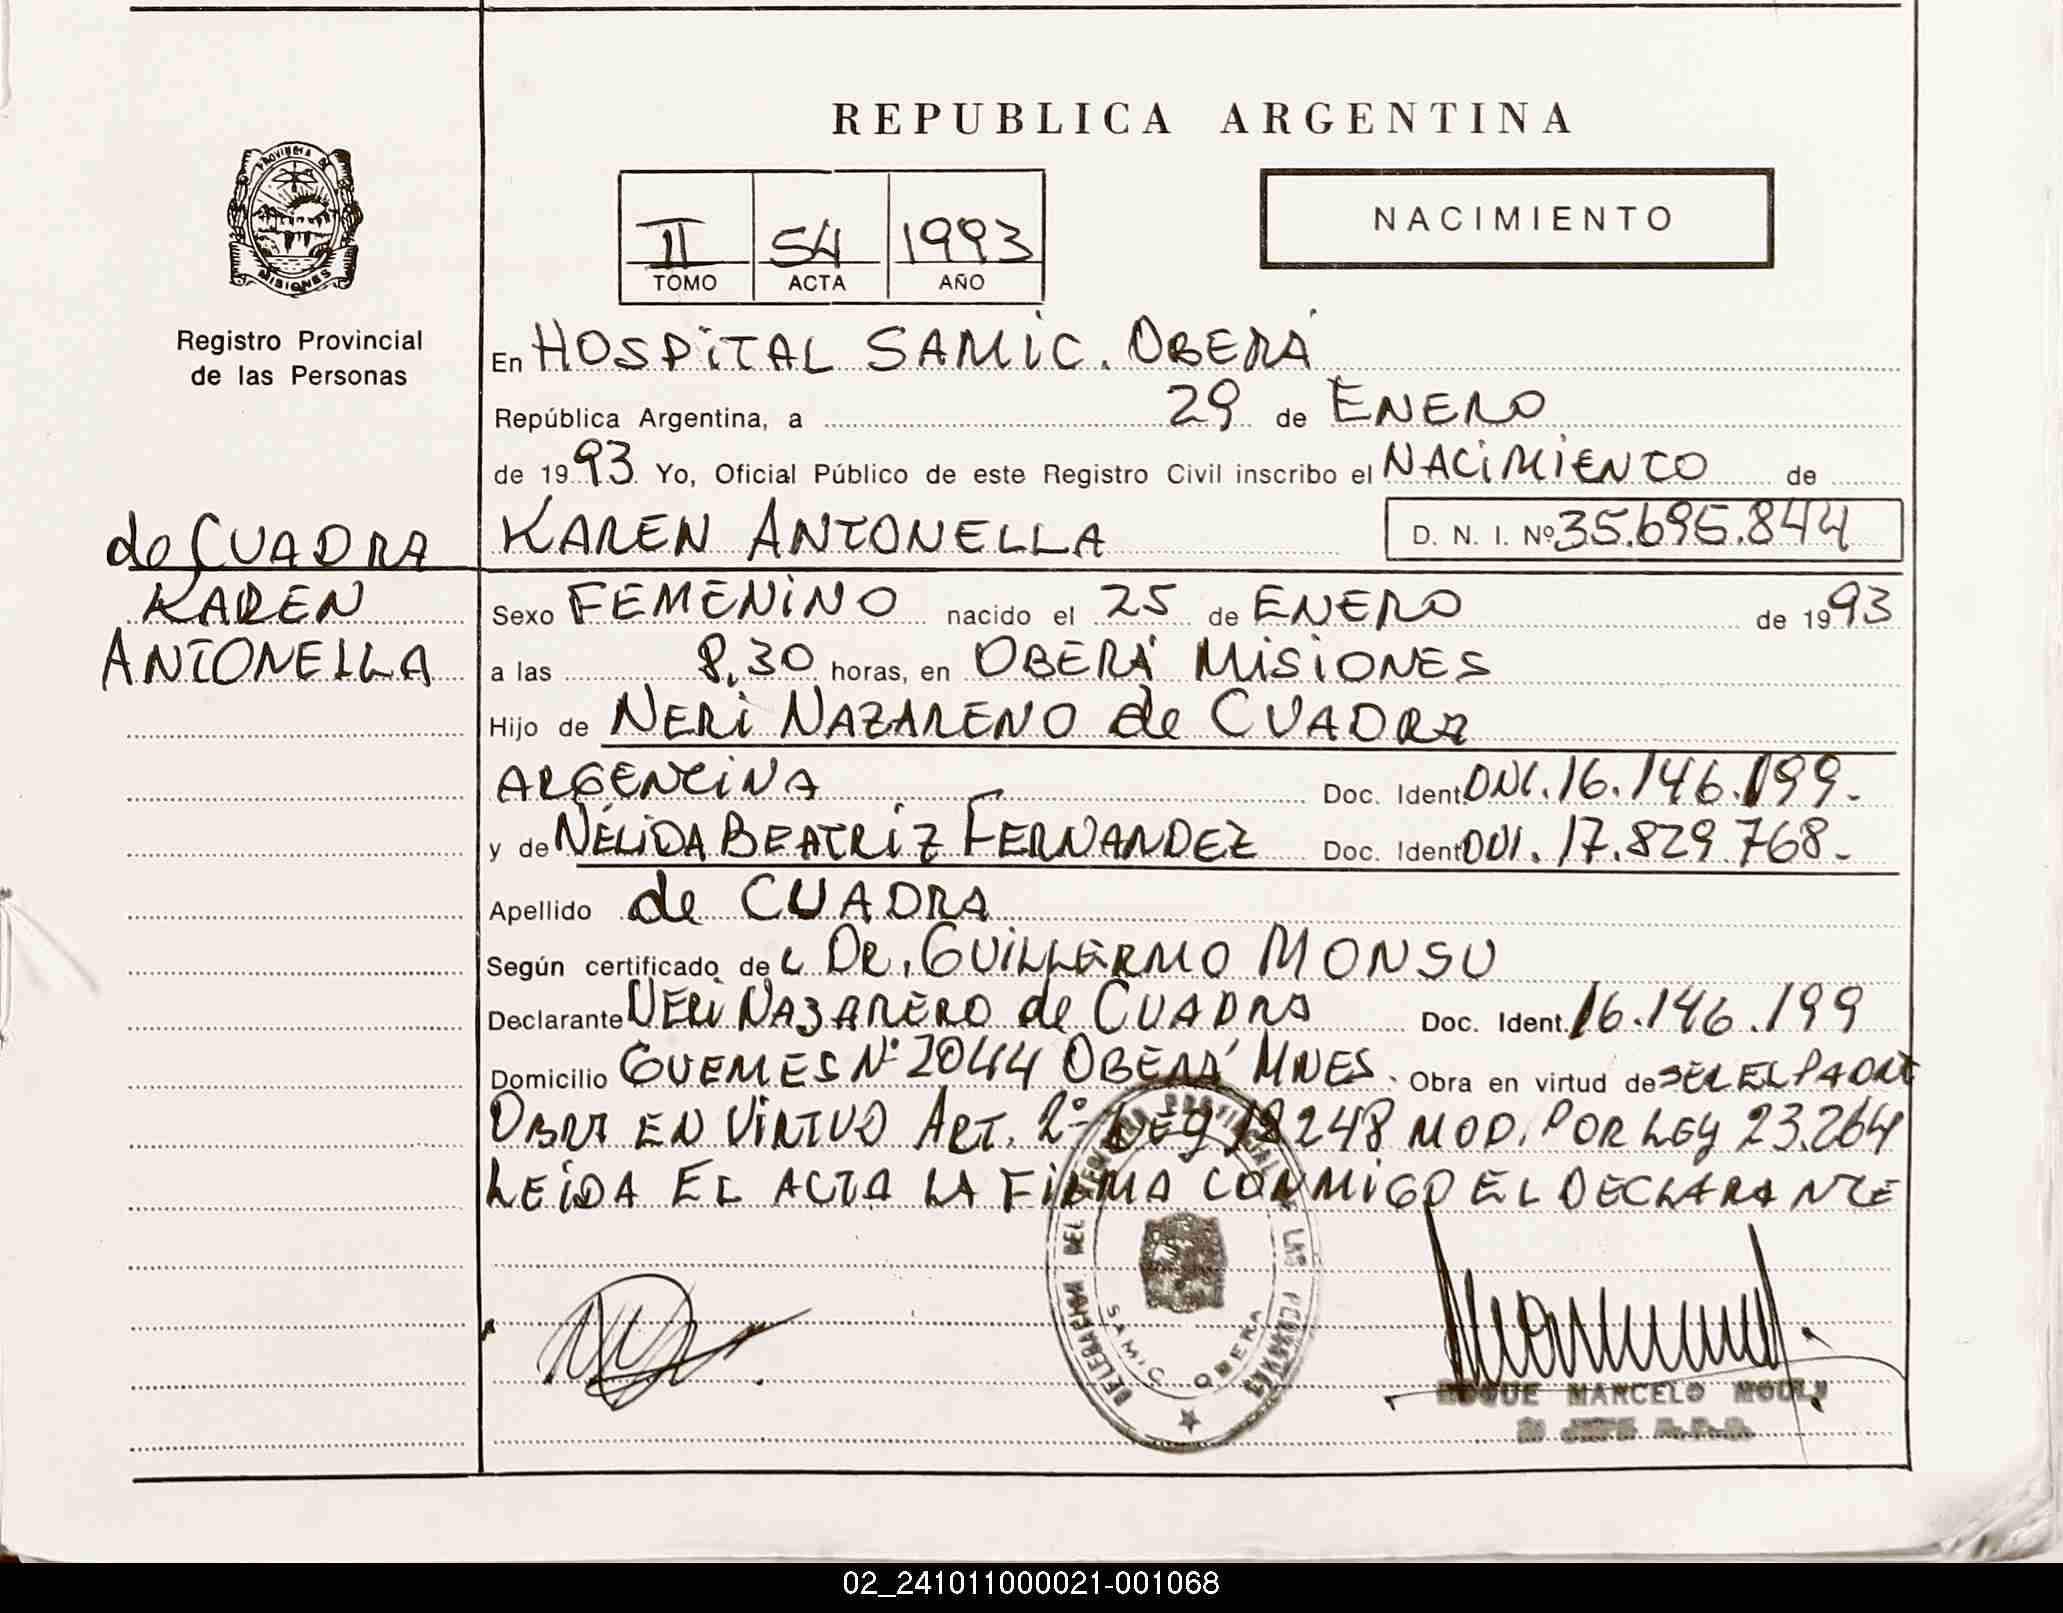 REPUBLICA ARGENTINA
PROVINCIA DE
MISIONES
II 54 1993
TOMO ACTA AÑO
NACIMIENTO
Registro Provincial
de las Personas
En HOSPITAL SAMIC. OBERÁ
República Argentina, a 29 de ENERO
de 1993 Yo, Oficial Público de este Registro Civil inscribo el NACIMIENTO de
de CUADRA
KAREN
ANTONELLA
KAREN ANTONELLA D. N. I. Nº 35.695.844
Sexo FEMENINO nacido el 25 de ENERO de 1993
a las 8,30 horas, en OBERÁ MISIONES
Hijo de NERI NAZARENO de CUADRA
ARGENTINA Doc. Ident. DNI. 16.146.199.-
y de NELIDA BEATRIZ FERNANDEZ Doc. Ident DNI. 17.829.768.-
Apellido de CUADRA
Según certificado de L DR. GUILLERMO MONSU
Declarante NERI NAZARENO de CUADRA Doc. Ident. 16.146.199
Domicilio GUEMES Nº 2044 OBERA' MNES. Obra en virtud de SER EL PADRE
OBRA EN VIRTUD ART. 2º LEY 18248 MOD. POR LEY 23.264
LEIDA EL ACTA LA FIRMA CONMIGO EL DECLARANTE
DELEGACION DEL REGISTRO PROVINCIAL DE LAS PERSONAS
SAMIC OBERA
ROQUE MARCELO
02_241011000021-001068